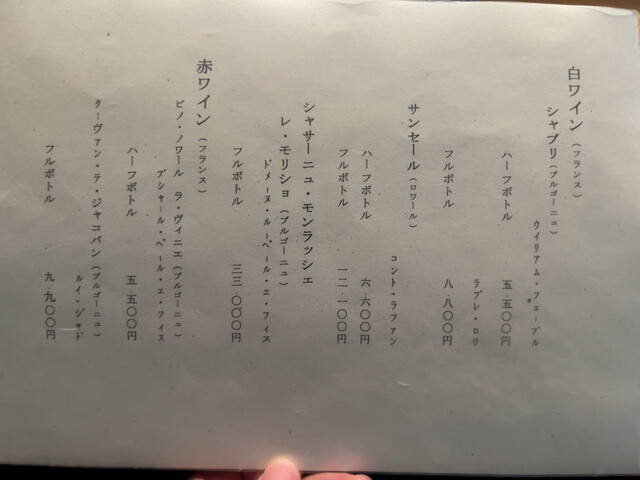 白ワイン（フランス）
シャブリ（ブルゴーニュ）
ウイリアム・フェーブル
ハーフボトル 五、五〇〇円
ラブレ・ロワ
フルボトル 八、八〇〇円
サンセール（ロワール）
コント・ラファン
ハーフボトル 六、六〇〇円
フルボトル 一二、一〇〇円
シャサーニュ・モンラッシェ
レ・モリショ（ブルゴーニュ）
ドメーヌ・ルーペール・エ・フィス
フルボトル 三三、〇〇〇円
赤ワイン（フランス）
ピノ・ノワール ラ・ヴィニエ（ブルゴーニュ）
ブシャール・ペール・エ・フィス
ハーフボトル 五、五〇〇円
クーヴァン・デ・ジャコバン（ブルゴーニュ）
ルイ・ジャド
フルボトル 九、九〇〇円